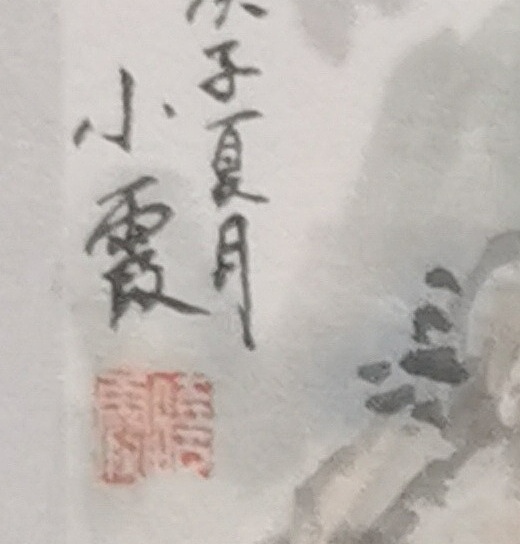 庚子夏月
小霞